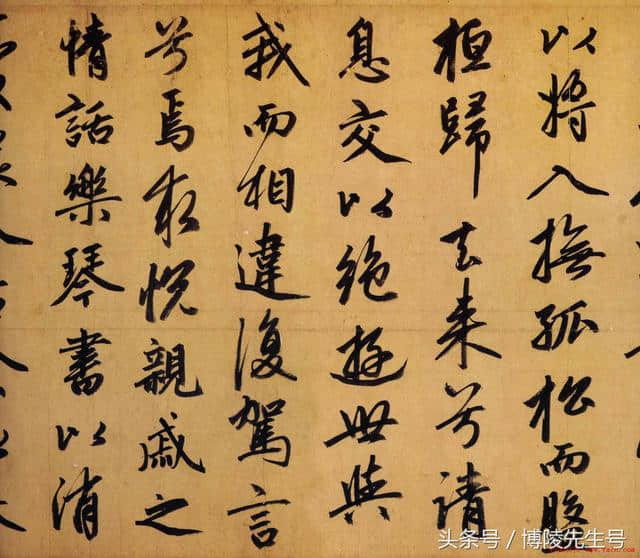 以將入撫孤松而
桓歸去来兮請
息交以絶遊世與
我而相違復駕言
兮焉求悦親戚之
情話樂琴書以消
头条号 / 博陵先生号